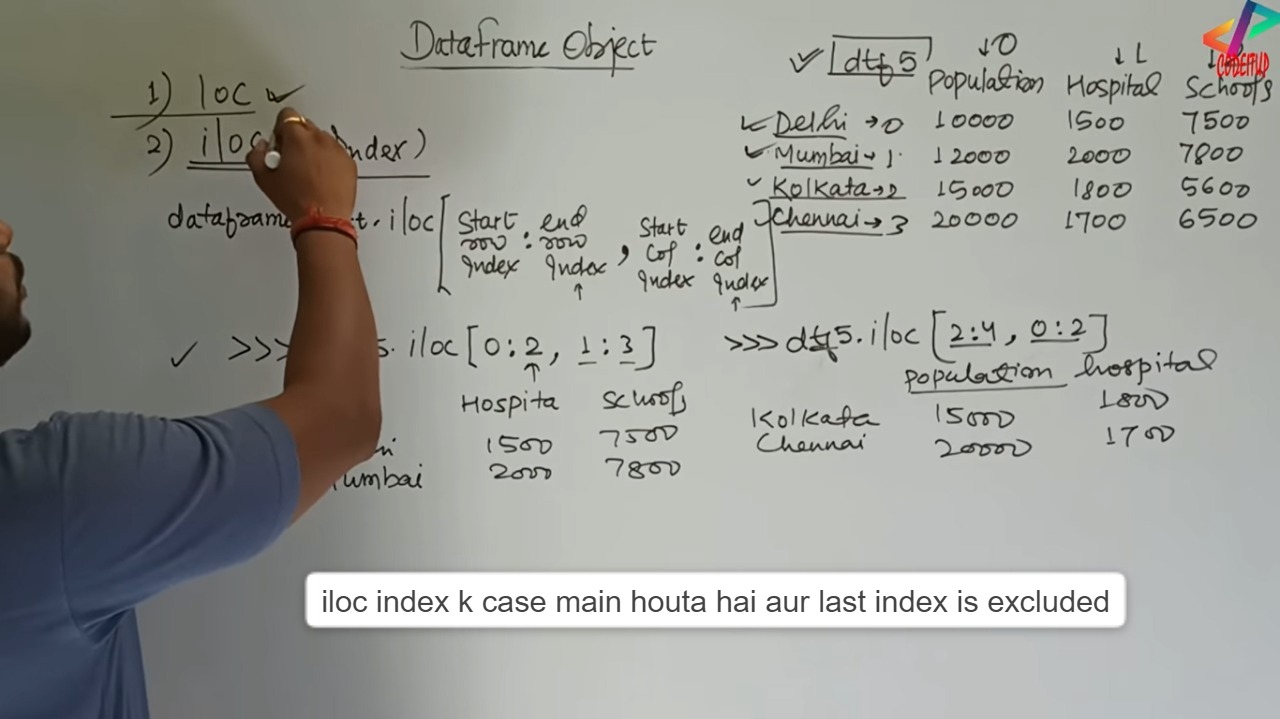 Dataframe Object
1) loc ✓
2) iloc ndex)
dataframe t.iloc[Start row Index : end row Index , Start Col Index : end Col Index]
✓ dtf5
↓0 ↓1
Population Hospital Schools
CODEITUP
✓ Delhi → 0 10000 1500 7500
✓ Mumbai → 1. 12000 2000 7800
✓ Kolkata → 2 15000 1800 5600
Chennai → 3 20000 1700 6500
✓ >>> 5.iloc[0:2, 1:3]
Hospita Schools
1500 7500
umbai 2000 7800
>>> dtf5.iloc[2:4, 0:2]
Population hospital
Kolkata 15000 1800
Chennai 20000 1700
iloc index k case main houta hai aur last index is excluded